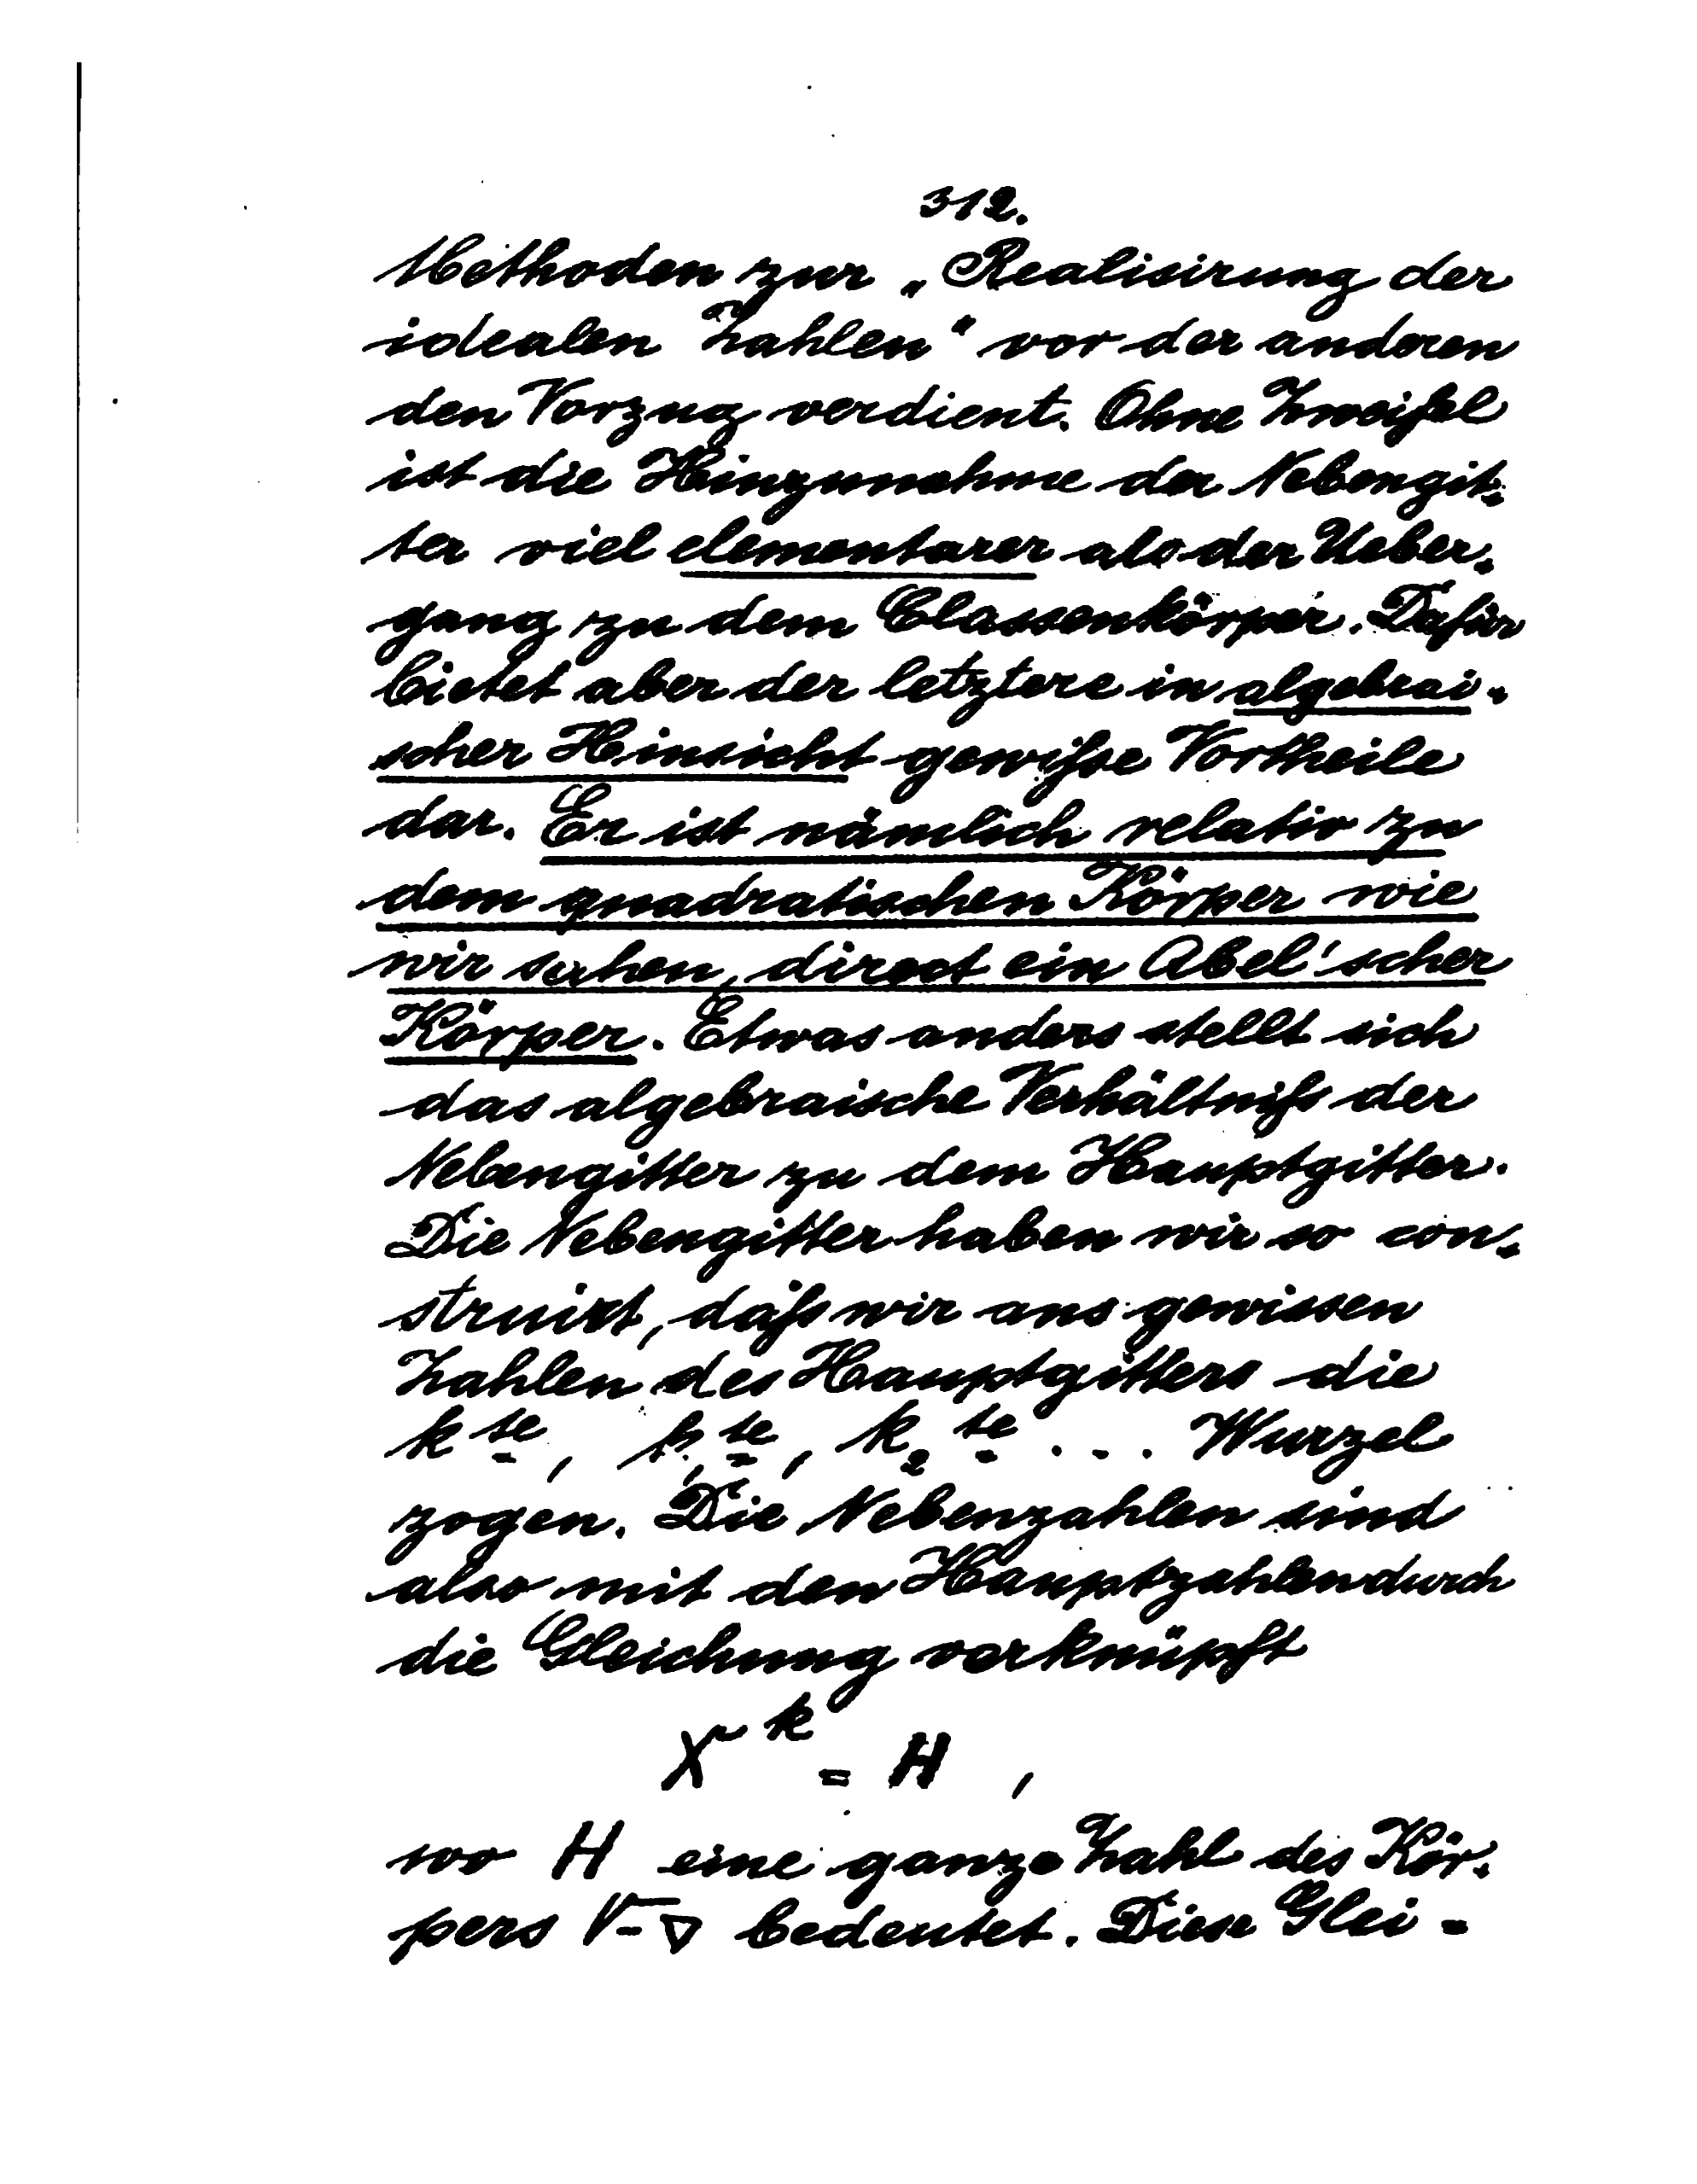 312.
Methoden zur „Realisirung der
idealen Zahlen“ vor der anderen
den Vorzug verdient. Ohne Zweifel
ist die Hinzunahme der Nebengit-
ter viel elementarer als der Ueber-
gang zu dem Classenkörper. Dafür
bietet aber der letztere in algebrai-
scher Hinsicht gewiße Vortheile
dar. Er ist nämlich relativ zu
dem quadratischen Körper wie
wir sahen, direct ein Abel'scher
Körper. Etwas anders stellt sich
das algebraische Verhältniß der
Nebengitter zu dem Hauptgitter.
Die Nebengitter haben wir so con-
struirt, daß wir aus gewissen
Zahlen des Hauptgitters die
k te, k₁ te, k₂ te ... Wurzel
zogen. Die Nebenzahlen sind
also mit den Hauptzahlen durch
die Gleichung verknüpft
X^k = H ,
wo H eine ganze Zahl des Kör-
pers √-∇ bedeutet. Diese Glei-